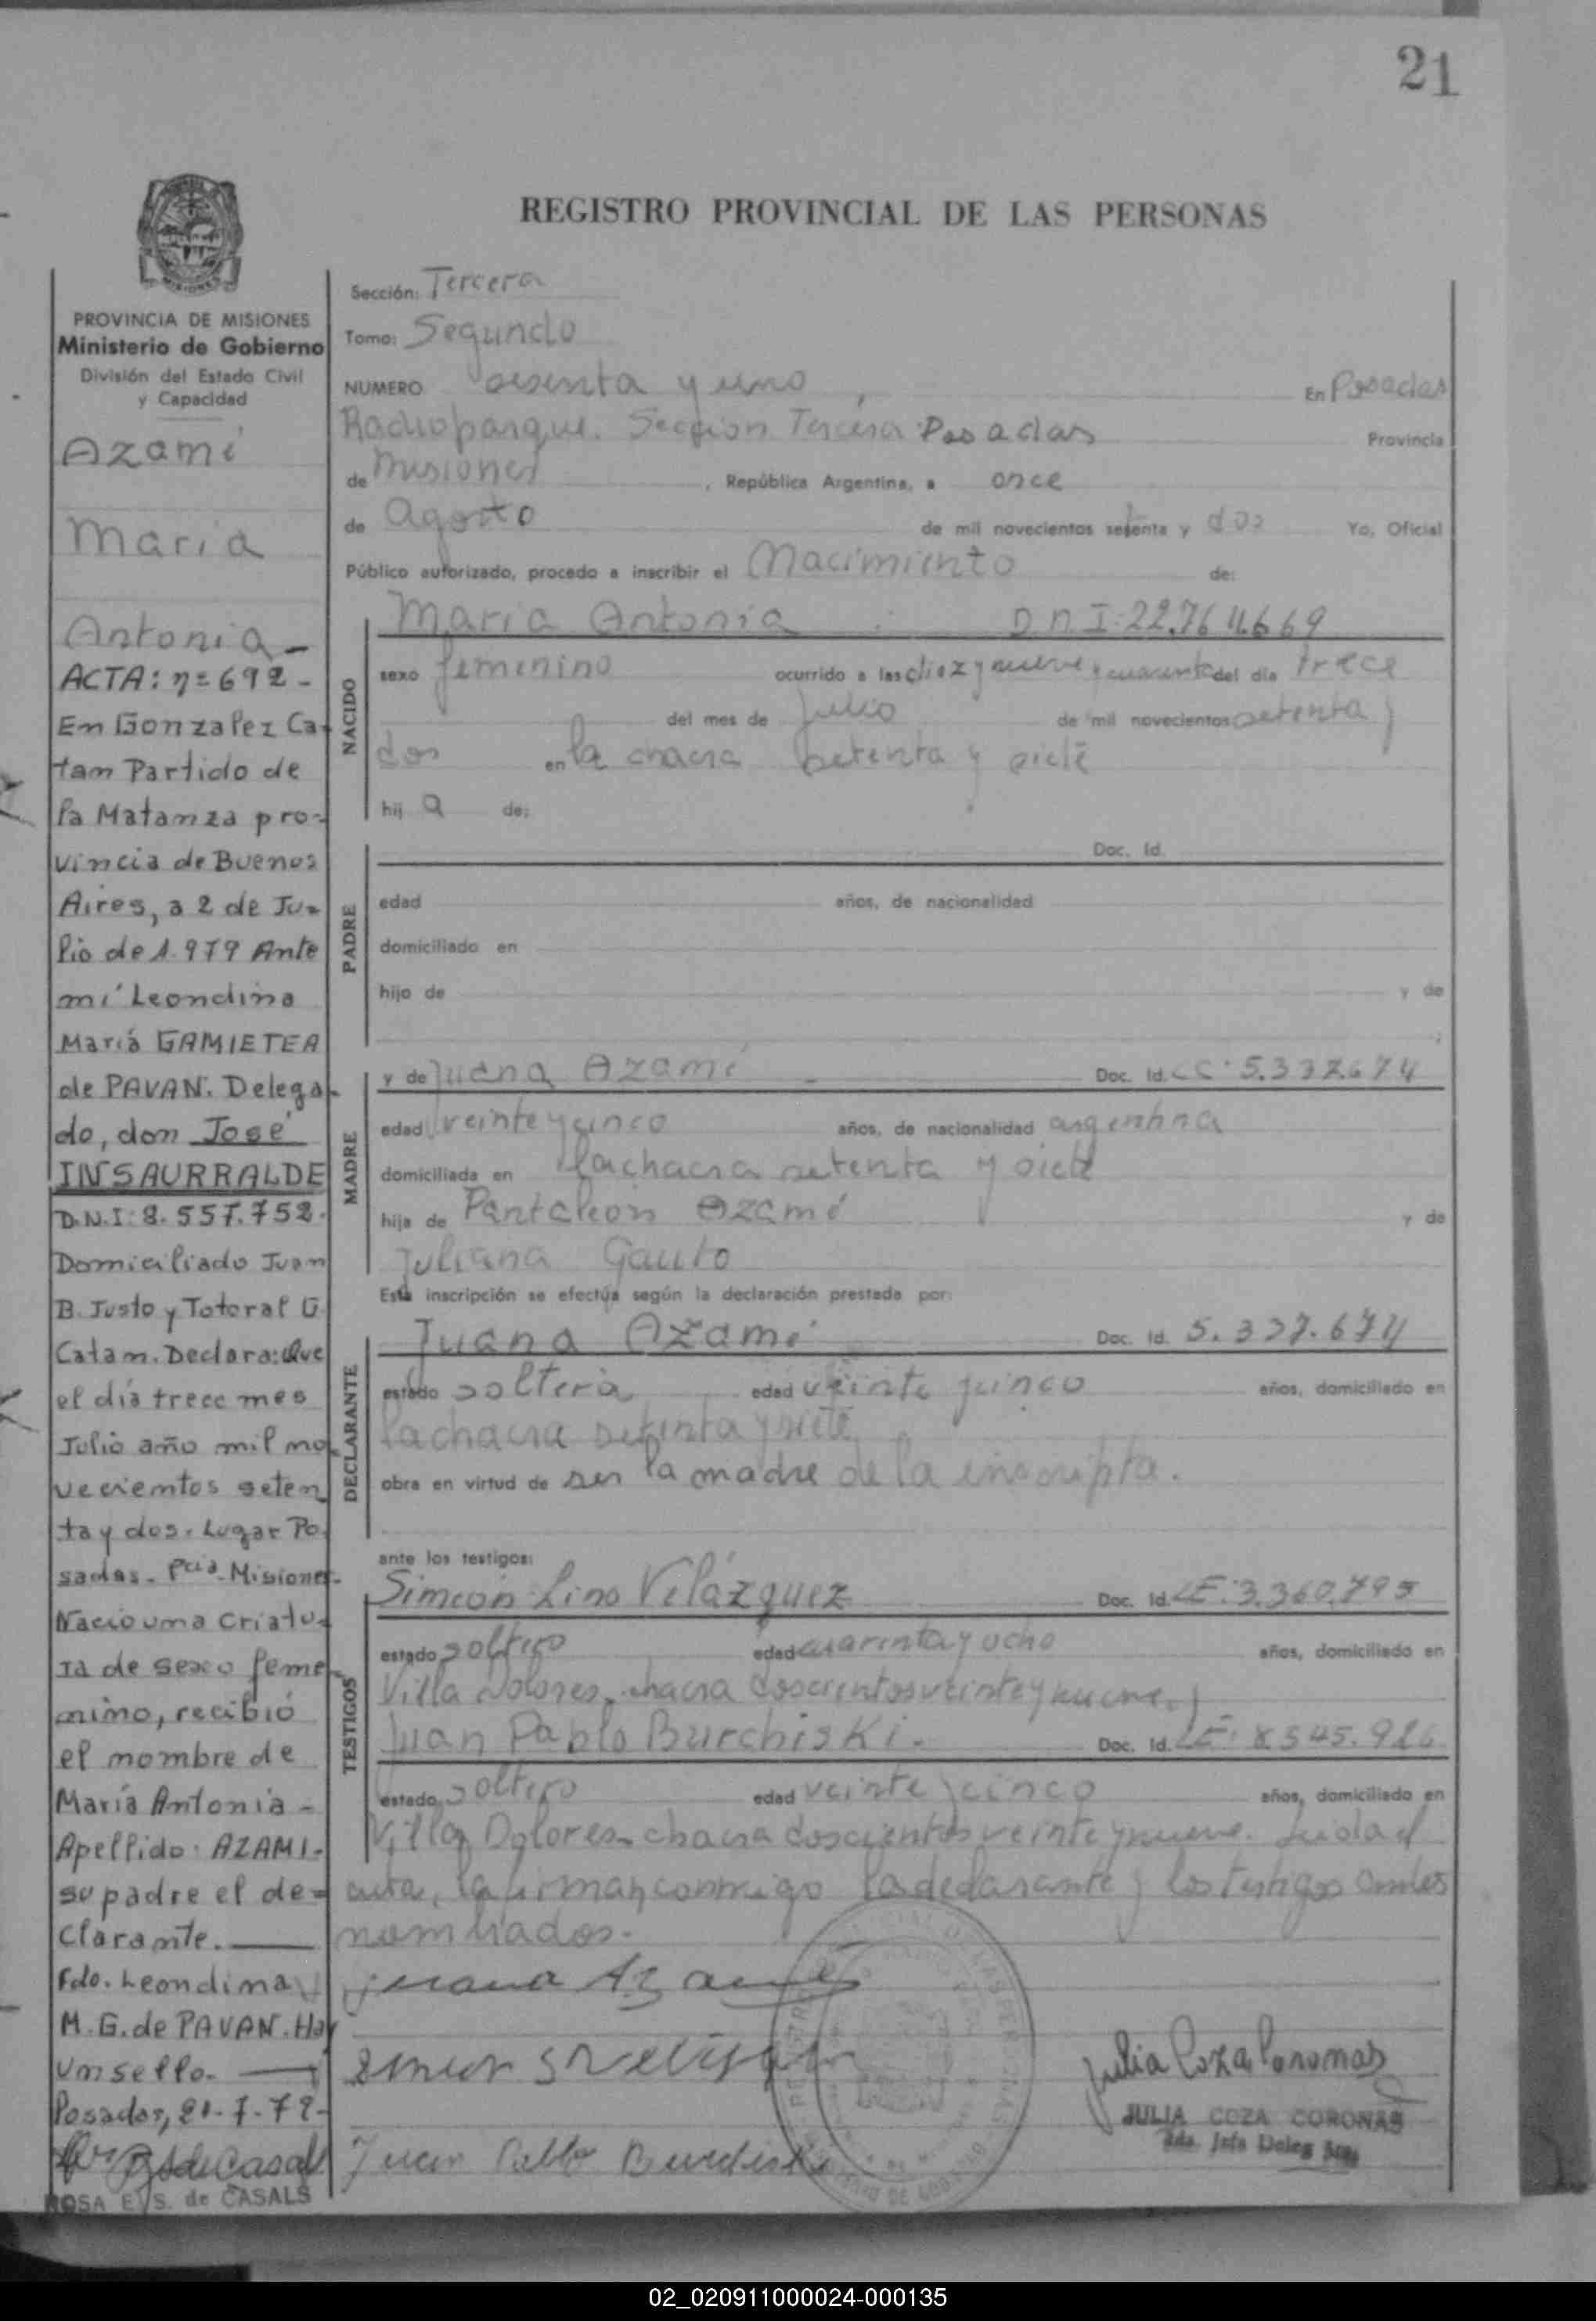 21
REGISTRO PROVINCIAL DE LAS PERSONAS
PROVINCIA DE MISIONES
Ministerio de Gobierno
División del Estado Civil
y Capacidad
Azamé
Maria
Antonia -
ACTA: n= 692 -
En Gonzalez Ca-
tam Partido de
la Matanza pro-
vincia de Buenos
Aires, a 2 de Ju-
lio de 1.979 Ante
mi Leondina
María GAMIETEA
de PAVAN. Delega-
do, don José
INSAURRALDE
D.N.I: 8.557.752.
Domiciliado Juan
B. Justo y Totoral G.
Catam. Declara: Que
el día trece mes
Julio año mil no-
vecientos seten
ta y dos. Lugar Po-
sadas. Pcia. Misiones-
Nacio una criatu-
ra de sexo feme-
nino, recibió
el nombre de
María Antonia -
Apellido: AZAMI-
su padre el de-
clarante.
Fdo. Leondina
M. G. de PAVAN. Hay
un sello.
Posadas, 21-7-79-
ROSA E. S. de CASALS
Sección: Tercera
Tomo: Segundo
NUMERO sesenta y uno, En Posadas
Radioparque. Sección Tercera Posadas Provincia
de Misiones, República Argentina, a once
de Agosto de mil novecientos setenta y dos Yo, Oficial
Público autorizado, procedo a inscribir el Nacimiento de:
NACIDO
Maria Antonia D.N.I: 22.764.669
sexo femenino ocurrido a las diez y nueve y cuarenta del día trece
del mes de Julio de mil novecientos setenta y
dos en la chacra setenta y siete
hij a de:
PADRE
Doc. Id.
edad años, de nacionalidad
domiciliado en
hijo de y de
;
MADRE
y de Juana Azamé Doc. Id. CC. 5.337.674
edad veinte y cinco años, de nacionalidad argentina
domiciliada en la chacra setenta y siete
hija de Pantaleón Azamé y de
Juliana Gauto
Esta inscripción se efectúa según la declaración prestada por:
DECLARANTE
Juana Azamé Doc. Id. 5.337.674
estado soltera edad veinte y cinco años, domiciliado en
la chacra setenta y siete
obra en virtud de ser la madre de la inscripta.
ante los testigos:
TESTIGOS
Simeón Lino Velázquez Doc. Id. LE: 3.360.795
estado soltero edad cuarenta y ocho años, domiciliado en
Villa Dolores, chacra doscientos veinte y nueve y
Juan Pablo Burchiski. Doc. Id. LE: 8545.926
estado soltero edad veinte y cinco años, domiciliado en
Villa Dolores chacra doscientos veinte y nueve. Leida el
acta, la firman conmigo la declarante y los testigos antes
nombrados.
Juana Azamé
Juan Pablo Burchiski
Julia Coza Coronas
JULIA COZA CORONAS
02_020911000024-000135